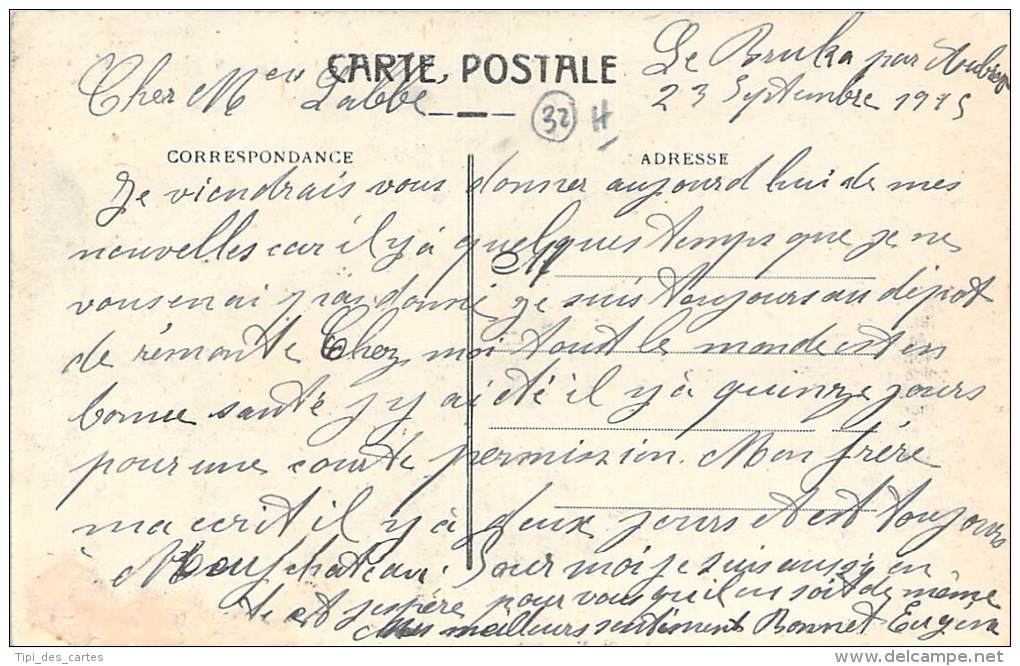 Le Bruka par Aubiet
23 Septembre 1915
CARTE POSTALE
Cher Mer Labbé
32 H
CORRESPONDANCE
ADRESSE
Je viendrais vous donner aujourd hui de mes
nouvelles car il y à quelques temps que je ne
vous en ai pas donné, je suis toujours au dépot
de rémonte Chez moi tout le monde est en
bonne santé j y ai été il y à quinze jours
pour une courte permission. Mon frère
ma ecrit il y à deux jours et est toujours
à Neufchateau. Pour moi je suis aussi en
te et jespère pour vous qu il en soit de même
Mes meilleurs sentiments Bonnet Eugène
Tipi_des_cartes
delcampe.net